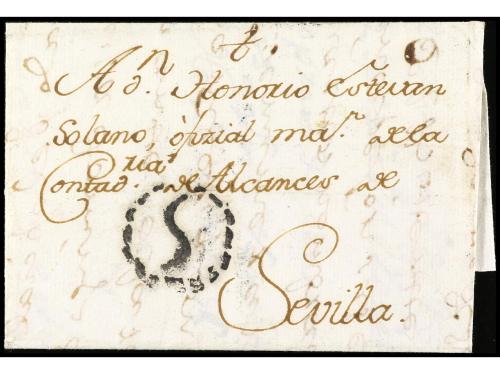 A dn. Honorio Estevan
Solano, ofizial mar. de la
Contadria. de Alcances de
S
Sevilla.